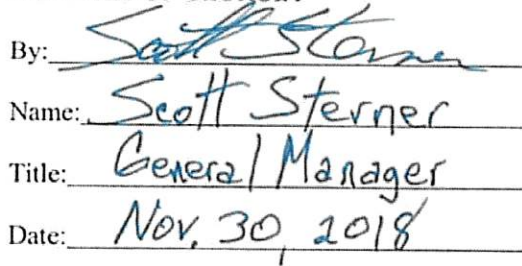 By: Scott Sterner
Name: Scott Sterner
Title: General Manager
Date: Nov. 30, 2018